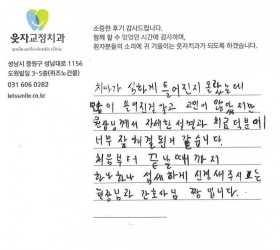 웃자교정치과
성남시 중원구 성남대로 1156
도원빌딩 3-5층(위즈노건물)
031 606 0282
letssmile.co.kr
소중한 후기 감사드립니다.
함께 할 수 있었던 시간에 감사하며,
환자분들의 소리에 귀 기울이는 웃자치과가 되도록 하겠습니다.
치아가 심하게 틀어진지 몰랐는데
많이 틀어진걸 알고 고민이 많았지만
원장님께서 자세한 설명과 치료 덕분에
너무 잘 해결된거 같습니다.
처음부터 끝날때까지
하나하나 섬세하게 신경써주시고
원장님과 간호사님 짱 입니다.